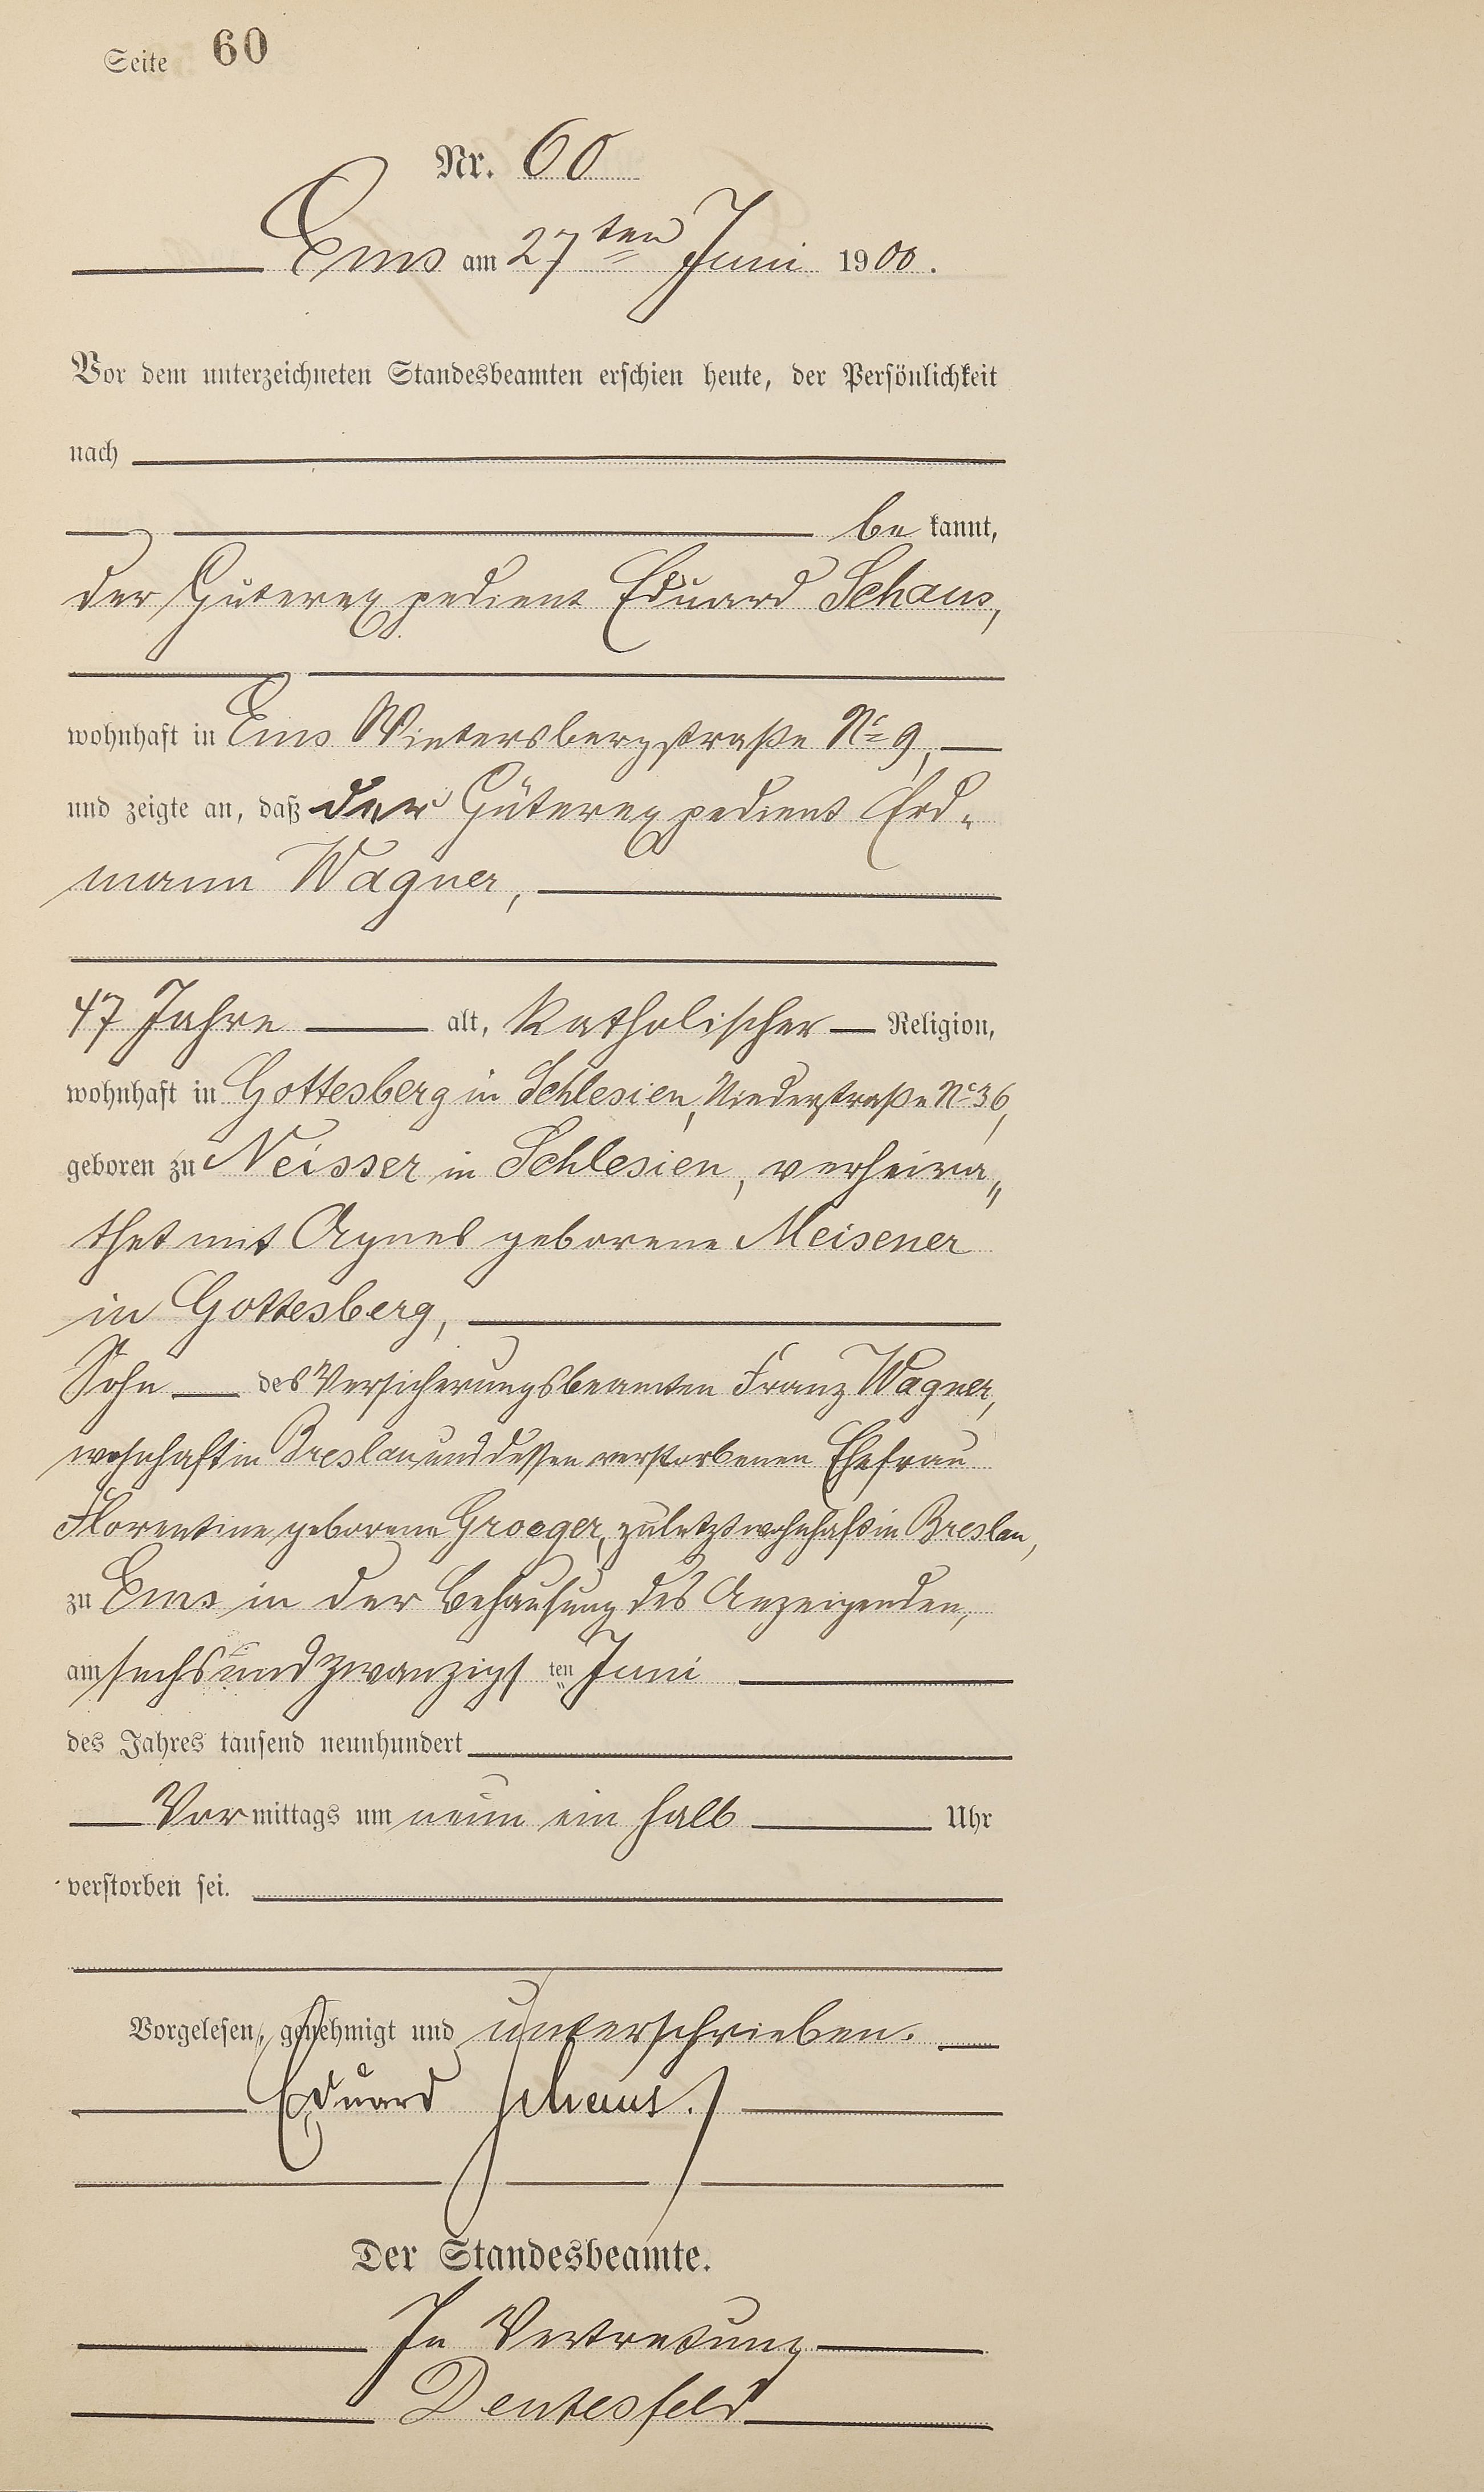 Seite 60
Nr. 60
Ems am 27ten Juni 1900.
Vor dem unterzeichneten Standesbeamten erschien heute, der Persönlichkeit
nach
be kannt,
der Güterexpedient Eduard Schaus,
wohnhaft in Ems Wintersbergstraße No 9,
und zeigte an, daß der Güterexpedient Erd-
mann Wagner,
47 Jahre alt, katholischer Religion,
wohnhaft in Gottesberg in Schlesien, Niederstraße No 36,
geboren zu Neisser in Schlesien, verheira„
thet mit Agnes geborene Meisener
in Gottesberg,
Sohn des Versicherungsbeamten Franz Wagner,
wohnhaft in Breslau und dessen verstorbenen Ehefrau
Florentine geborene Groeger, zuletzt wohnhaft in Breslau,
zu Ems in der Behausung des Anzeigenden,
am sechs und zwanzigs ten Juni
des Jahres tausend neunhundert
Vor mittags um neun ein halb Uhr
verstorben sei.
Vorgelesen, genehmigt und unterschrieben.
Eduard Schaus.
Der Standesbeamte.
In Vertretung